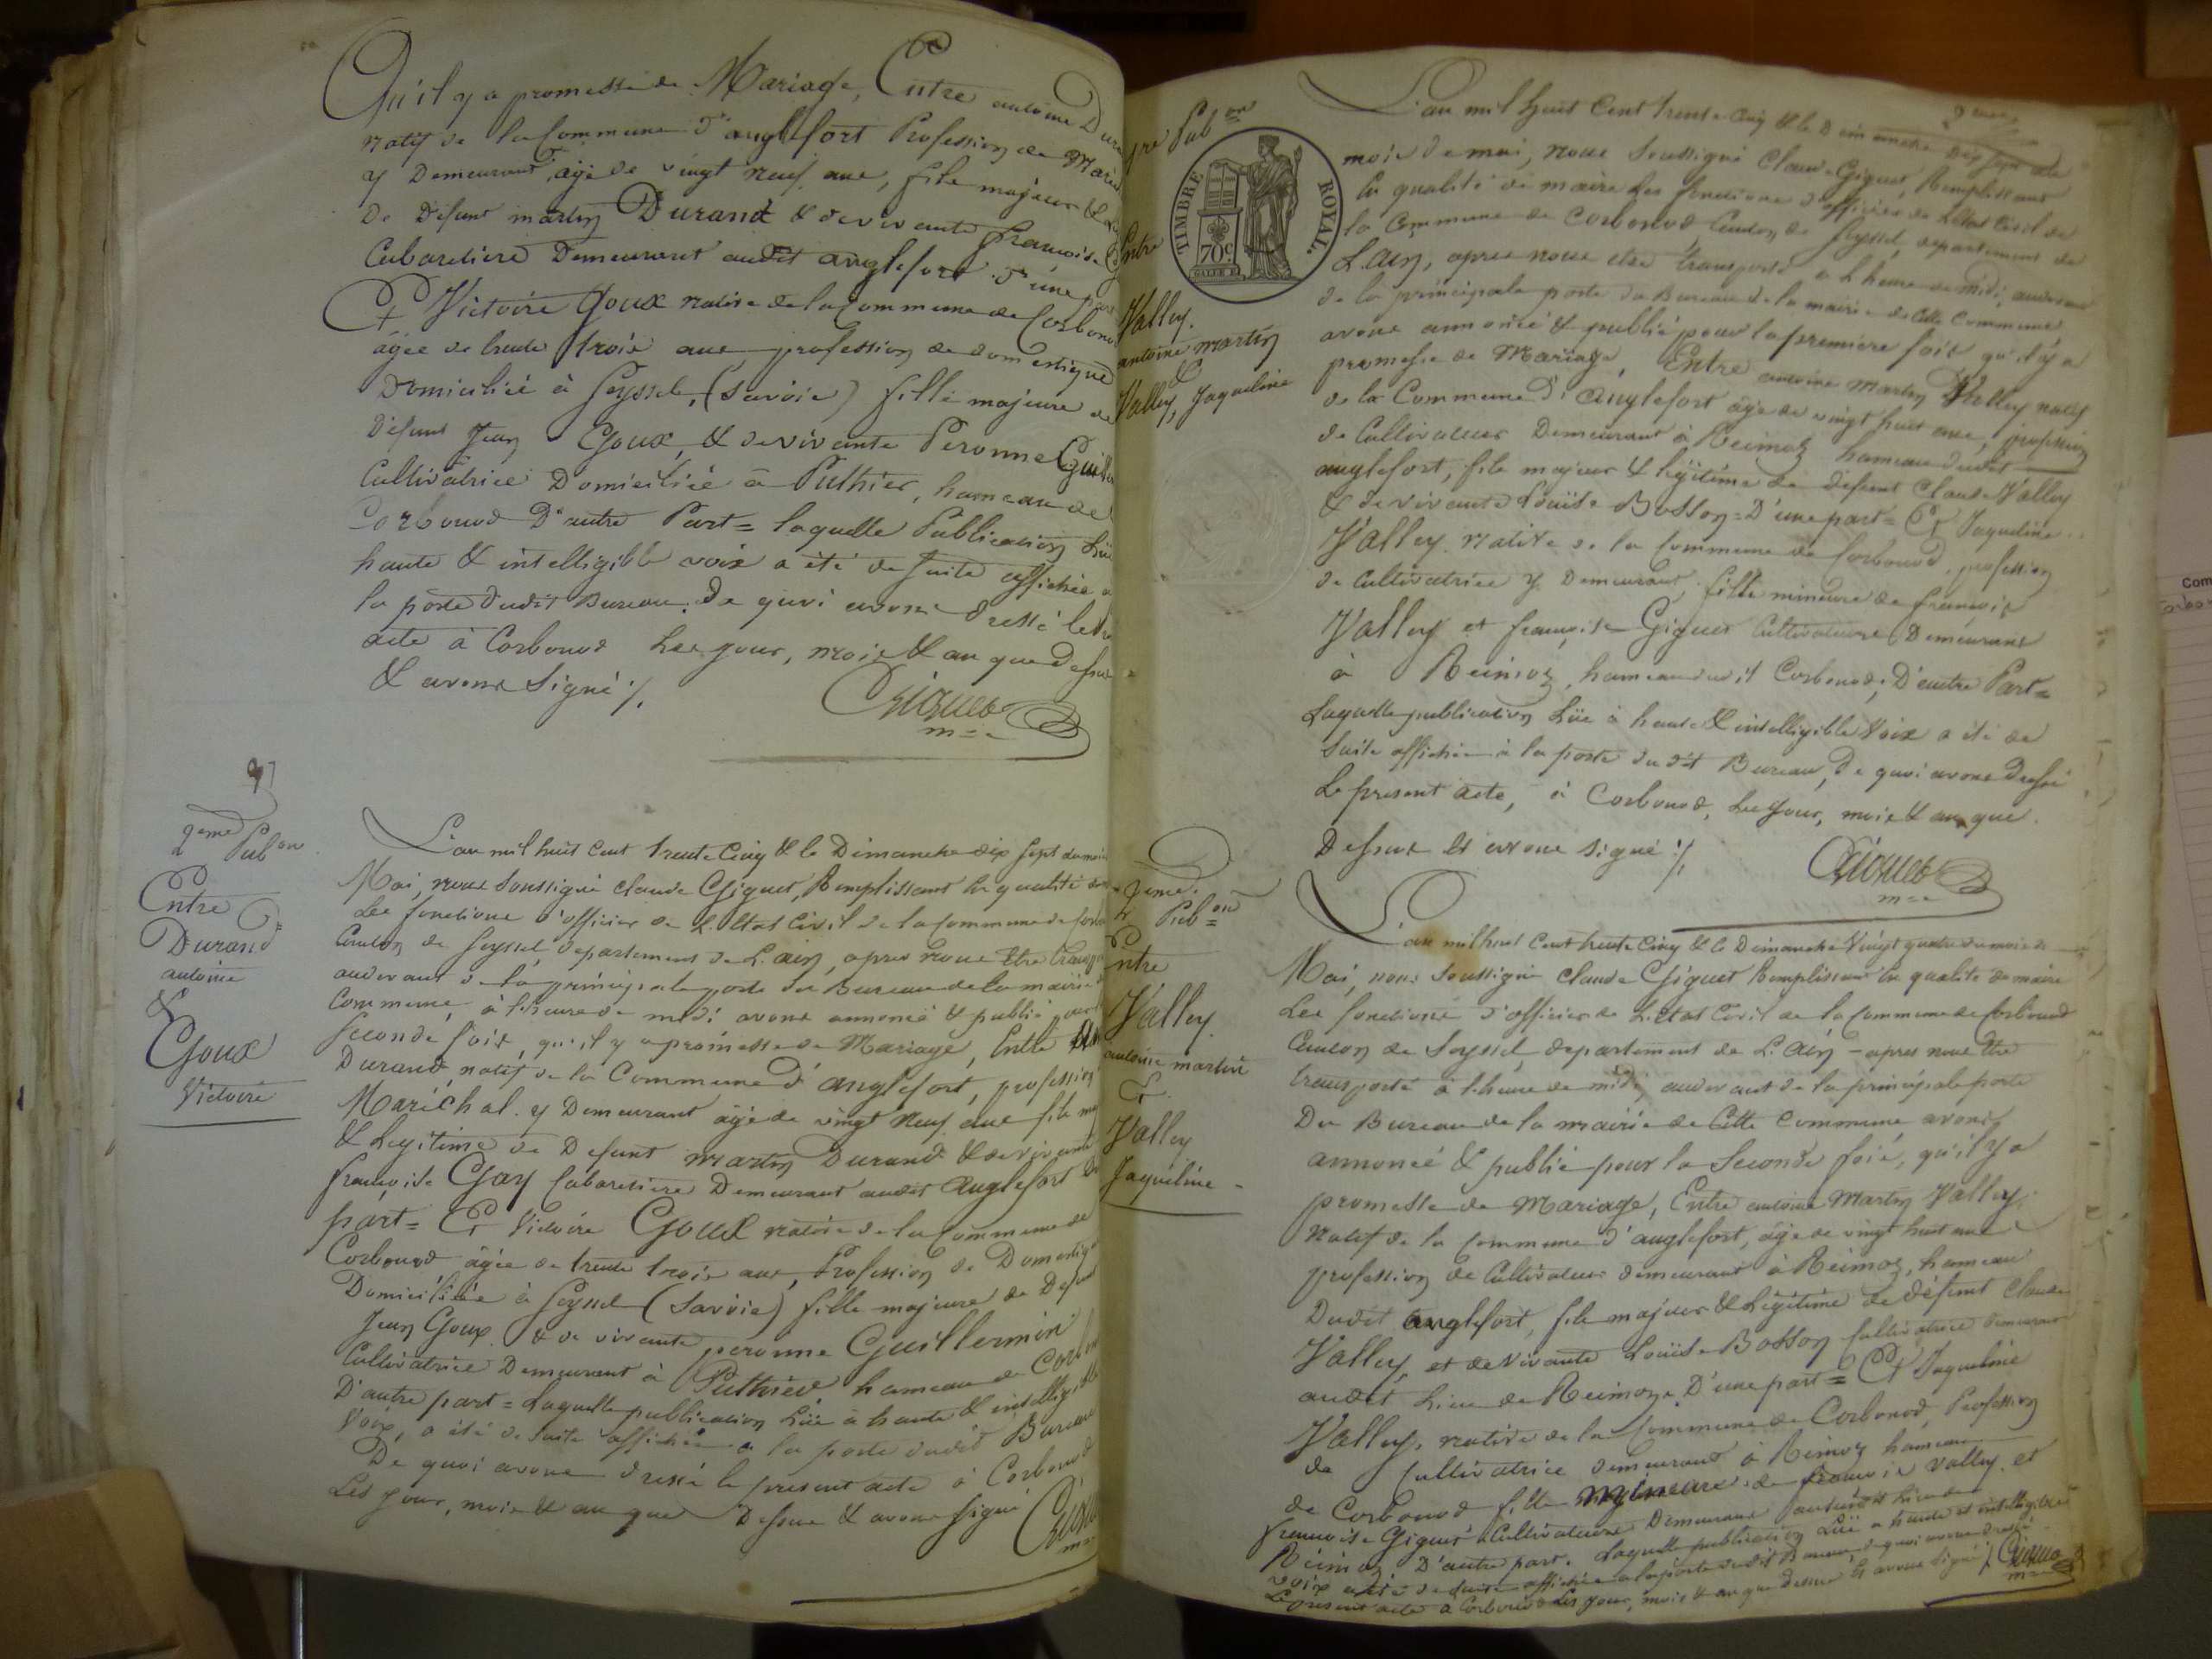 Qu'il y a promesse de Mariage, Entre antoine Dura
natif de la Commune d'anglefort Profession de Maréc
y Demeurant, agé de vingt neuf ans, fils majeur &
de défunt martin Durand & de vivante françoise G
Cabaretiere Demeurant audit anglefort d'une part
Et Victoire Goux native de la Commune de Corbono
âgée de trente trois ans, profession de domestique
Domiciliée à Seyssel, (Savoie) fille majeure de
défunt Jean Goux, & de vivante Peronne Guille
Cultivatrice Domiciliée à Puthier, hameau de
Corbonod D'autre Part = laquelle Publication Lüe
haute & intelligible voix a été de suite affichée a
la porte dudit Bureau. De quoi avons dressé le
acte à Corbonod Les jour, mois & an que dessus
& avons signé ./.
Giguet
m=e
97
2eme Pubon
Entre
Durand
antoine
&
Goux
Victoire
L'an mil huit cent trente cinq & le Dimanche dix sept du mois
Mai, nous soussigné claude Giguet, Remplissant la qualité de
Les fonctions d'officier de L'Etat Civil de la commune de Corbo
Canton de Seyssel, departement de L'ain, apres nous être transpo
audevant de la principale porte du Bureau de la mairie
Commune, à l'heure de midi avons annoncé & publié pour
seconde fois, qu'il y a promesse de Mariage, Entre
Durand, natif de la Commune d'anglefort, profession
Maréchal y Demeurant âgé de vingt neuf ans fils maj
& Legitime de Defunt martin Durand & de vivante
françoise Gay Cabaretiere Demeurant audit anglefort D'u
part = Et Victoire Goux native de la Commune de
Corbonod âgée de trente trois ans, Profession de Domestiq
Domiciliée à Seyssel (Savoie) fille majeure de Defunt
Jean Goux & de vivante peronne Guillermin
Cultivatrice Demeurant à Puthier hameau de Corbon
D'autre part = Laquelle publication Lüe à haute & intelligible
voix, a été de suite affichée a la porte dudit Bureau
De quoi avons dressé le présent acte à Corbonod
Les jour, mois & an que Dessus & avons signé
Giguet
m=e
1re Pubon
Entre
Valley.
antoine martin
&
Valley, Jaqueline
TIMBRE ROYAL.
70c.
L'an mil huit Cent trente cinq & le Dimanche dix sept du
mois de mai, nous soussigné Claude Giguet, Remplissant
la qualité de maire Les fonctions d'officier de L'Etat Civil de
la Commune de Corbonod Canton de Seyssel, departement de
L'ain, apres nous être transporté à L'heure de midi, audevant
de la principale porte du Bureau de la mairie de Cette Commune,
avons annoncé & publié pour la premiere fois qu'il y a
promesse de Mariage, Entre antoine martin Valley natif
de la Commune d'anglefort âgé de vingt huit ans, profession
de Cultivateur Demeurant à Reimoz hameau dudit
anglefort, fils majeur & légitime de défunt Claude Valley
& de vivante Louise Bosson = D'une part = Et Jaqueline
Valley native de la Commune de Corbonod, profession
de Cultivatrice y Demeurant, fille mineure de françois
Valley et françoise Giguet Cultivateurs Demeurans
à Reimoz, hameau dudit Corbonod, D'autre Part =
Laquelle publication Lüe à haute & intelligible Voix a été de
suite affichée à la porte dudit Bureau, De quoi avons dressé
Le présent acte, à Corbonod, Les jour, mois & an que
Dessus et avons signé ./.
Giguet
m=e
2eme Pubon
Entre
Valley
antoine martin
Et
Valley
Jaqueline
L'an mil huit Cent trente Cinq & le Dimanche Vingt quatre du mois de
Mai, nous soussigné claude Giguet Remplissant la qualité de maire
Les fonctions d'officier de L'Etat Civil de la Commune de Corbonod
Canton de Seyssel departement de L'Ain - apres nous être
transporté à l'heure de midi, audevant de la principale porte
Du Bureau de la mairie de Cette Commune avons
annoncé & publié pour la Seconde fois, qu'il y a
promesse de Mariage, Entre antoine Martin Valley,
Natif de la Commune d'anglefort, âgé de vingt huit ans
profession de Cultivateur demeurant à Reimoz, hameau
Dudit anglefort, fils majeur & Légitime de défunt Claude
Valley, et de Vivante Louise Bosson Cultivatrice demeurant
audit Lieu de Reimoz, D'une part = Et Jaqueline
Valley, native de la Commune de Corbonod, Profession
de Cultivatrice demeurant à Reimoz hameau
de Corbonod fille mineure de françois Valley, et
françoise Giguet Cultivateurs Demeurans audit Lieu de
Reimoz D'autre part. Laquelle publication Lüe a haute et intelligible
voix a été de suite affichée a la porte dudit Bureau, de quoi avons dressé
Le présent acte à Corbonod Les jour, mois & an que dessus et avons signé ./.
Giguet
m=e
Com